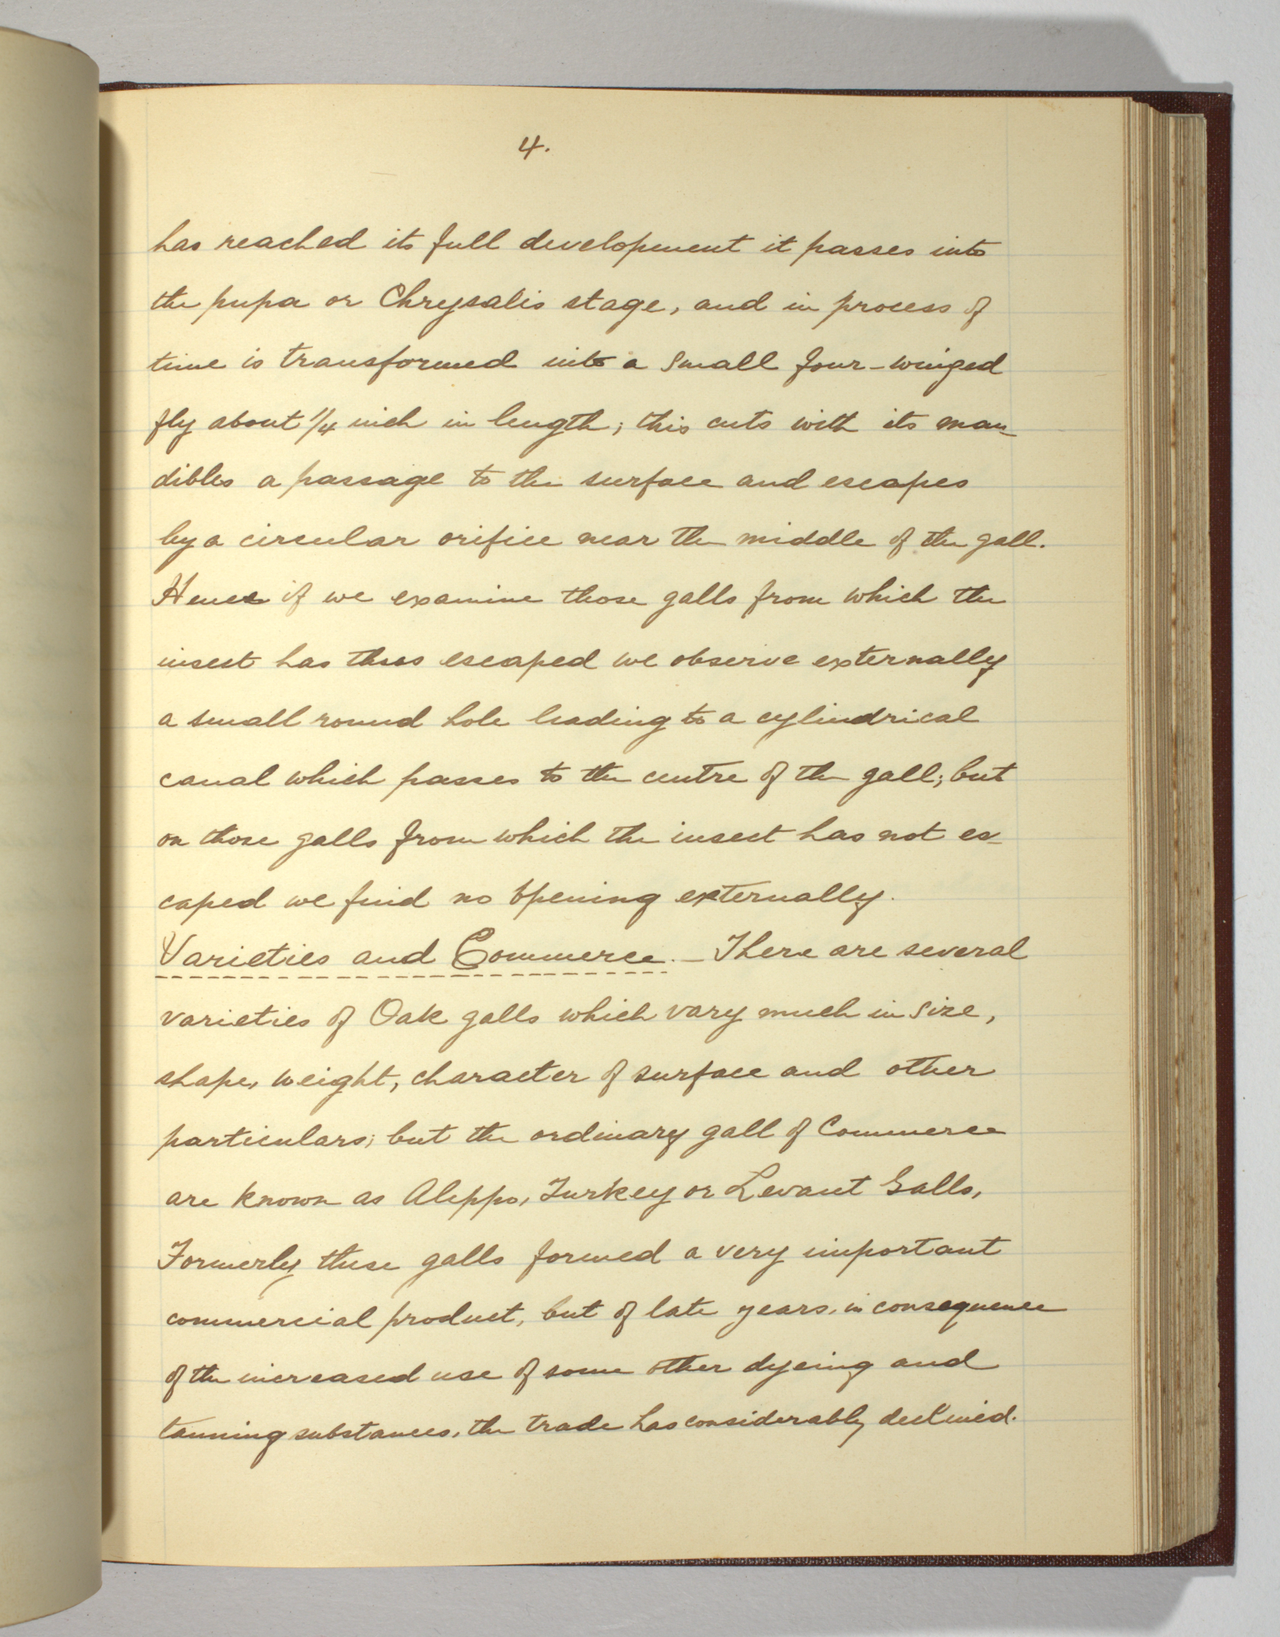 4.
has reached its full developement it passes into
the pupa or Chrysalis stage, and in process of
time is transformed into a small four-winged
fly about 1/4 inch in length; this cuts with its man-
dibles a passage to the surface and escapes
by a circular orifice near the middle of the gall.
Hence if we examine those galls from which the
insect has thus escaped we observe externally
a small round hole leading to a cylindrical
canal which passes to the centre of the gall; but
on those galls from which the insect has not es-
caped we find no opening externally.
Varieties and Commerce. - There are several
varieties of Oak galls which vary much in size,
shape, weight, character of surface and other
particulars; but the ordinary gall of Commerce
are known as Aleppo, Turkey or Levant Galls,
Formerly these galls formed a very important
commercial product, but of late years, in consequence
of the increased use of some other dyeing and
tanning substances, the trade has considerably declined.